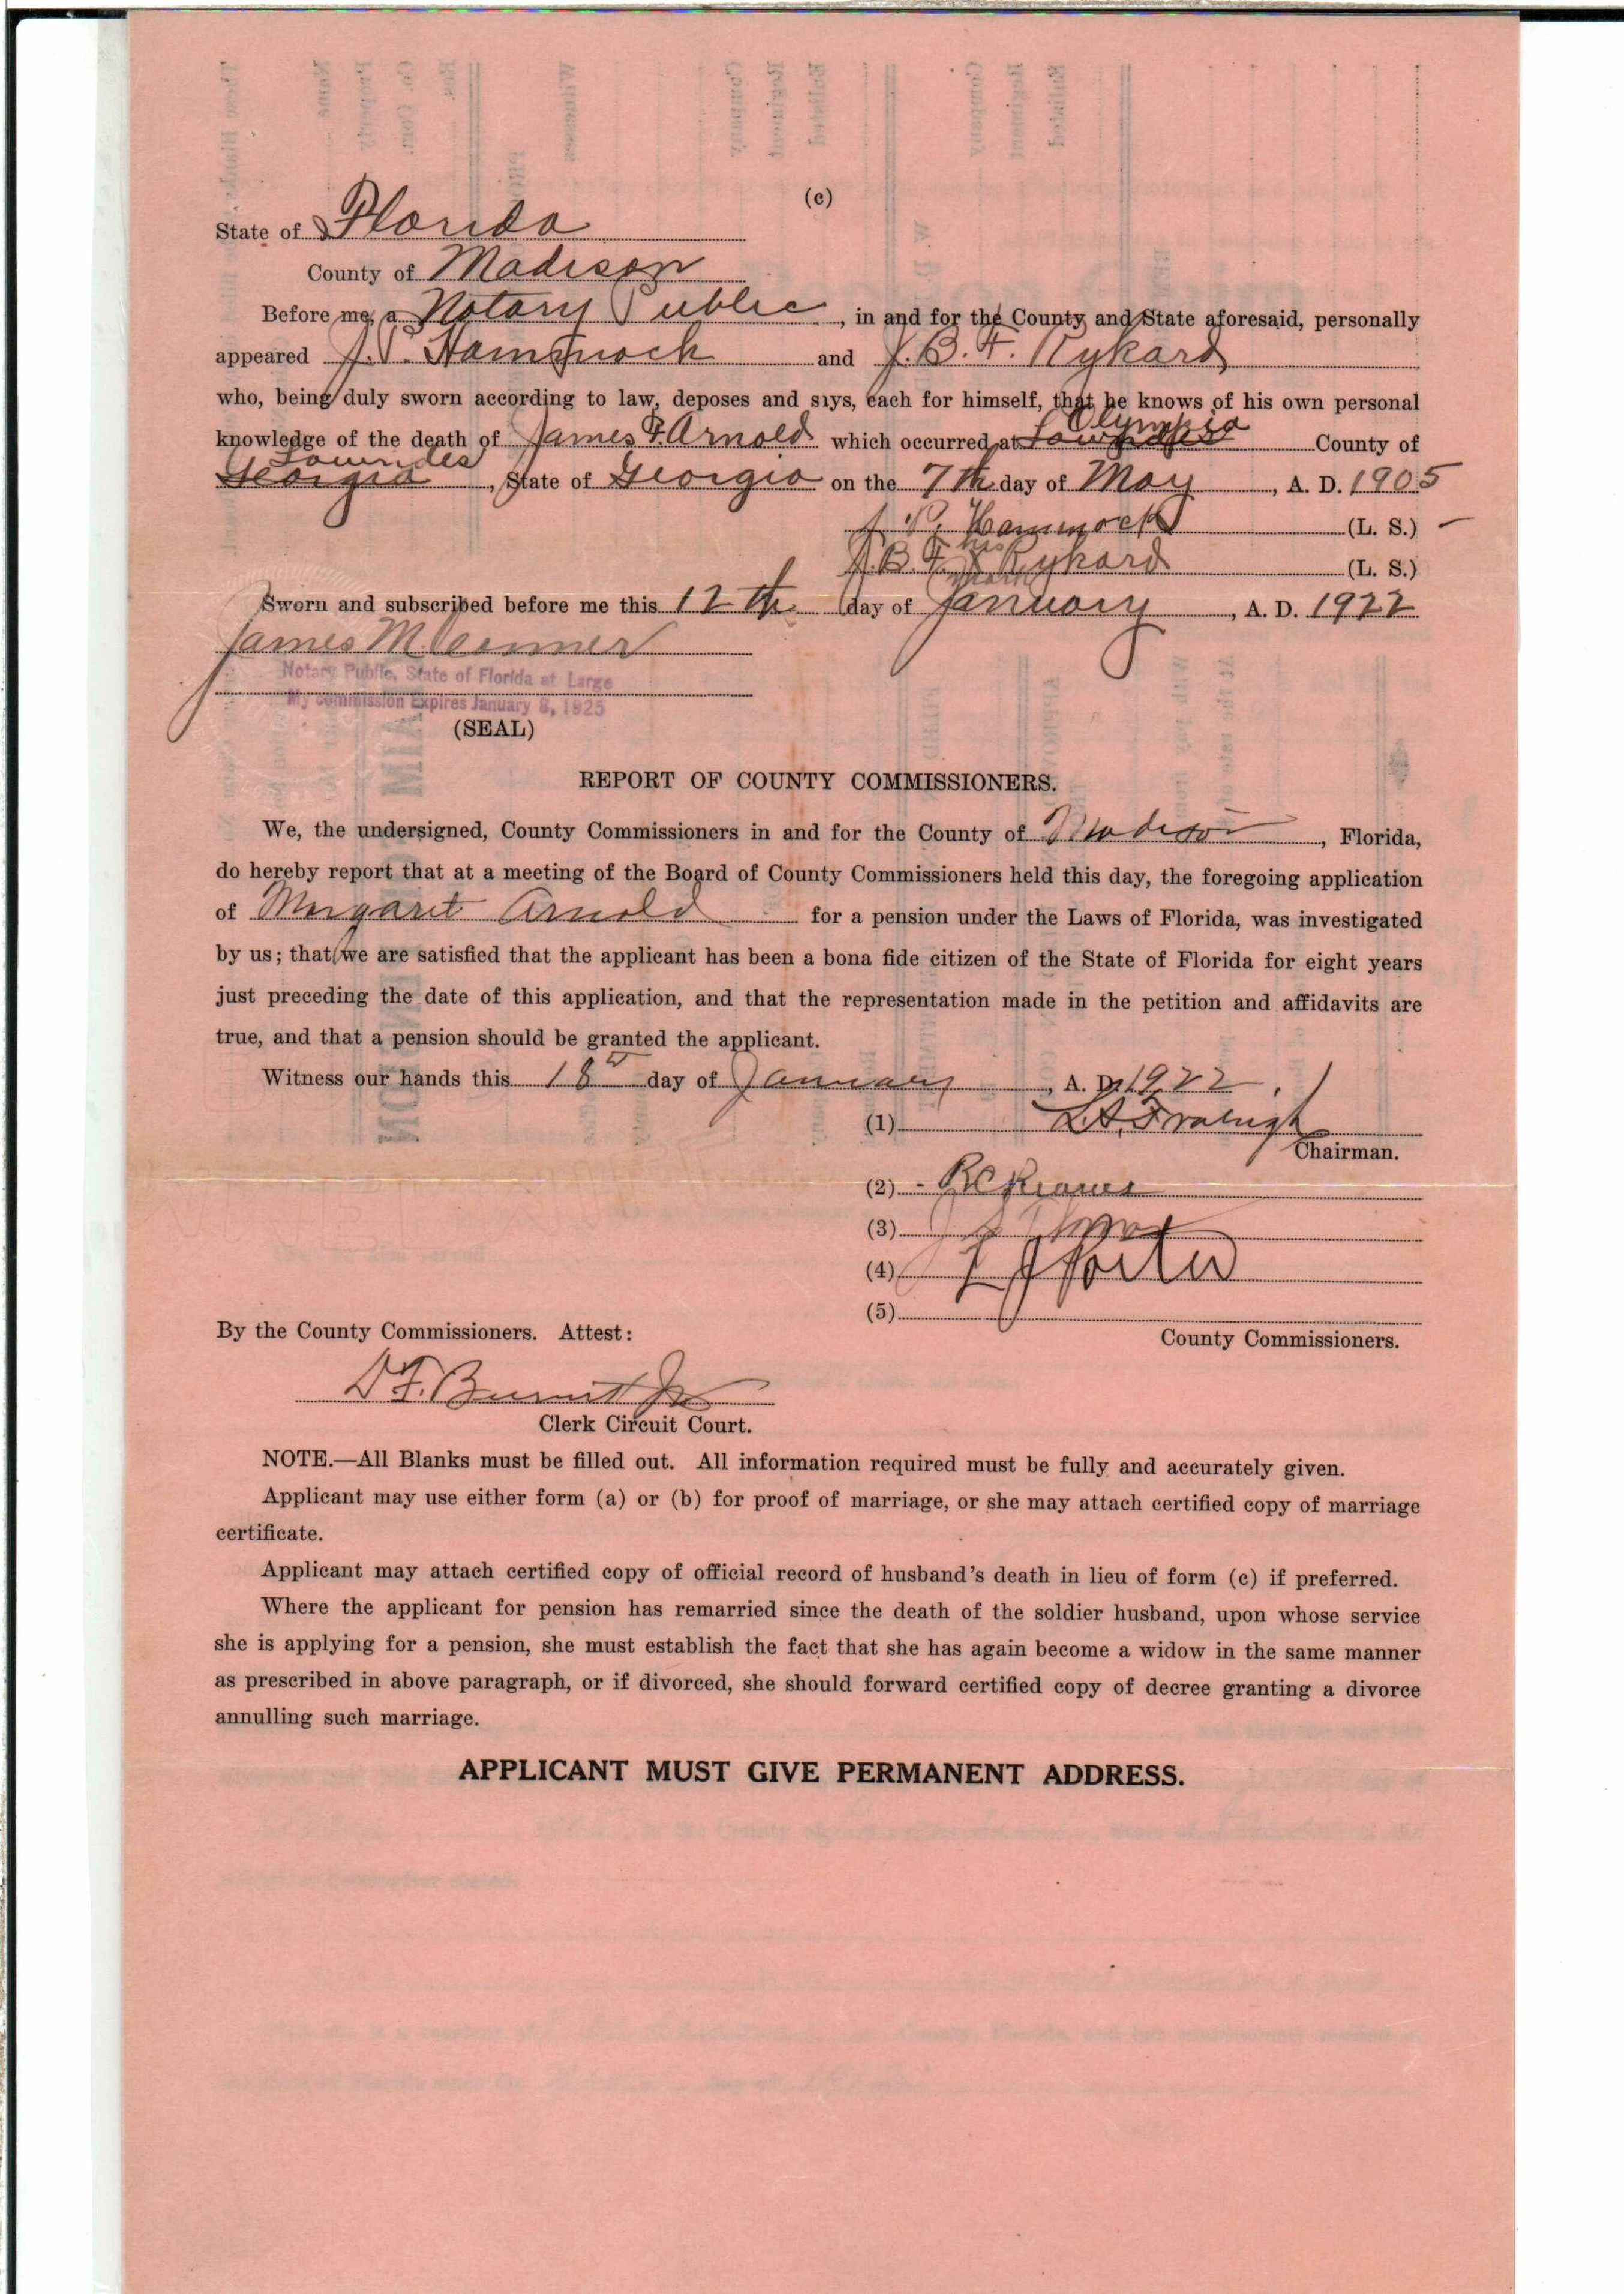 (c)
State of Florida
County of Madison
Before me, a Notary Public, in and for the County and State aforesaid, personally
appeared J. P. Hammock and J. B. F. Rykard
who, being duly sworn according to law, deposes and says, each for himself, that he knows of his own personal
Olympia
knowledge of the death of James F. Arnold which occurred at Lowndes County of
Lowndes
Georgia, State of Georgia on the 7th day of May, A. D. 1905
J. P. Hammock (L. S.)
his
J. B. F. X Rykard (L. S.)
mark
Sworn and subscribed before me this 12th day of January, A. D. 1922
James M.
Notary Public, State of Florida at Large
My commission Expires January 8, 1925
(SEAL)
REPORT OF COUNTY COMMISSIONERS.
We, the undersigned, County Commissioners in and for the County of Madison, Florida,
do hereby report that at a meeting of the Board of County Commissioners held this day, the foregoing application
of Margaret Arnold for a pension under the Laws of Florida, was investigated
by us; that we are satisfied that the applicant has been a bona fide citizen of the State of Florida for eight years
just preceding the date of this application, and that the representation made in the petition and affidavits are
true, and that a pension should be granted the applicant.
Witness our hands this 18 day of January, A. D. 1922.
(1) L. A. Fraleigh
Chairman.
(2)
(3)
(4) Porter
(5)
By the County Commissioners. Attest:
County Commissioners.
D. F. Burnett Jr
Clerk Circuit Court.
NOTE.—All Blanks must be filled out. All information required must be fully and accurately given.
Applicant may use either form (a) or (b) for proof of marriage, or she may attach certified copy of marriage
certificate.
Applicant may attach certified copy of official record of husband's death in lieu of form (c) if preferred.
Where the applicant for pension has remarried since the death of the soldier husband, upon whose service
she is applying for a pension, she must establish the fact that she has again become a widow in the same manner
as prescribed in above paragraph, or if divorced, she should forward certified copy of decree granting a divorce
annulling such marriage.
APPLICANT MUST GIVE PERMANENT ADDRESS.